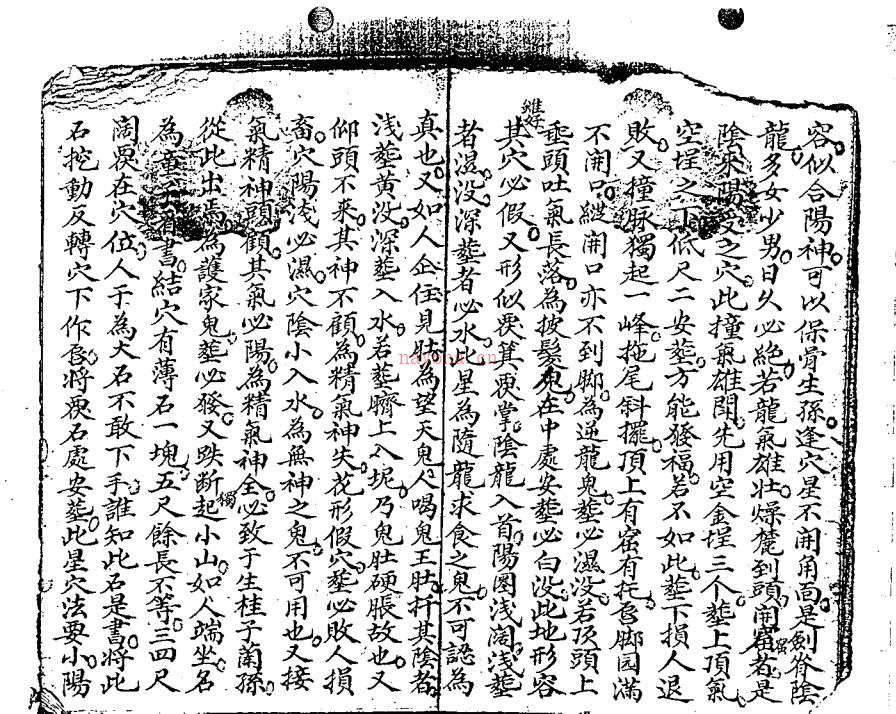 容似合陽神可以保骨生孫逢穴星不開角面是劍脊陰
龍多女少男日久必絕若龍氣雄壯燥麓到頭開窩者是
陰來陽受之穴此撞氣雄閗先用空金埕三个塟上頂氣
空埕之下低尺二安塟方能發福若不如此塟下損人退
敗又撞脉獨起一峰拖尾斜擺頂上有窩有托唇脚圓滿
不開口縱開口亦不到脚為逆龍鬼塟必濕没若頂頭上
垂頭吐氣長落為披髮鬼在中處安塟必白没此地形容
雖好
其穴必假又形似𠕇箕𠕇掌陰龍入首陽圈浅闊浅塟
者濕没深塟者必水此星為隨龍求食之鬼不可認為
真也又如人企住見肚為望天鬼人喝鬼王肚扦其陰者
浅塟黄没深塟入水若塟臍上入坭乃鬼肚硬脹故也又
仰頭不来其神不顧為精氣神失花形假穴塟必敗人損
畜穴陽浅必濕穴陰小入水為無神之鬼不可用也又接
氣精神頭顧其氣必陽為精氣神全必致于生桂子蘭孫
從此出焉為護家鬼塟必發又跌断起小山如人端坐名
獨
為童子看書結穴有薄石一塊五尺餘長不等三四尺
闊𠕇在穴位人于為大石不敢下手誰知此石是書將此
石挖動反轉穴下作唇將𠕇石處安塟此星穴法要小陽
nayona.cn